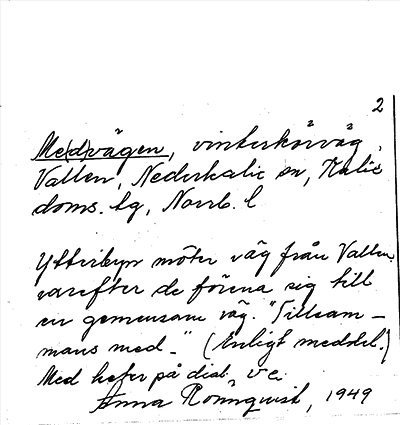 2
Me(d)vägen, vinterkörväg,
Vallen, Nederkalix sn, Kalix
doms. tg, Norrb. l
Ytterbyn möter väg från Vallen,
varefter de förena sig till
en gemensam väg. "Tillsam-
mans med-" (Enligt meddel.)
Med heter på dial.
Anna Rönnquist, 1949